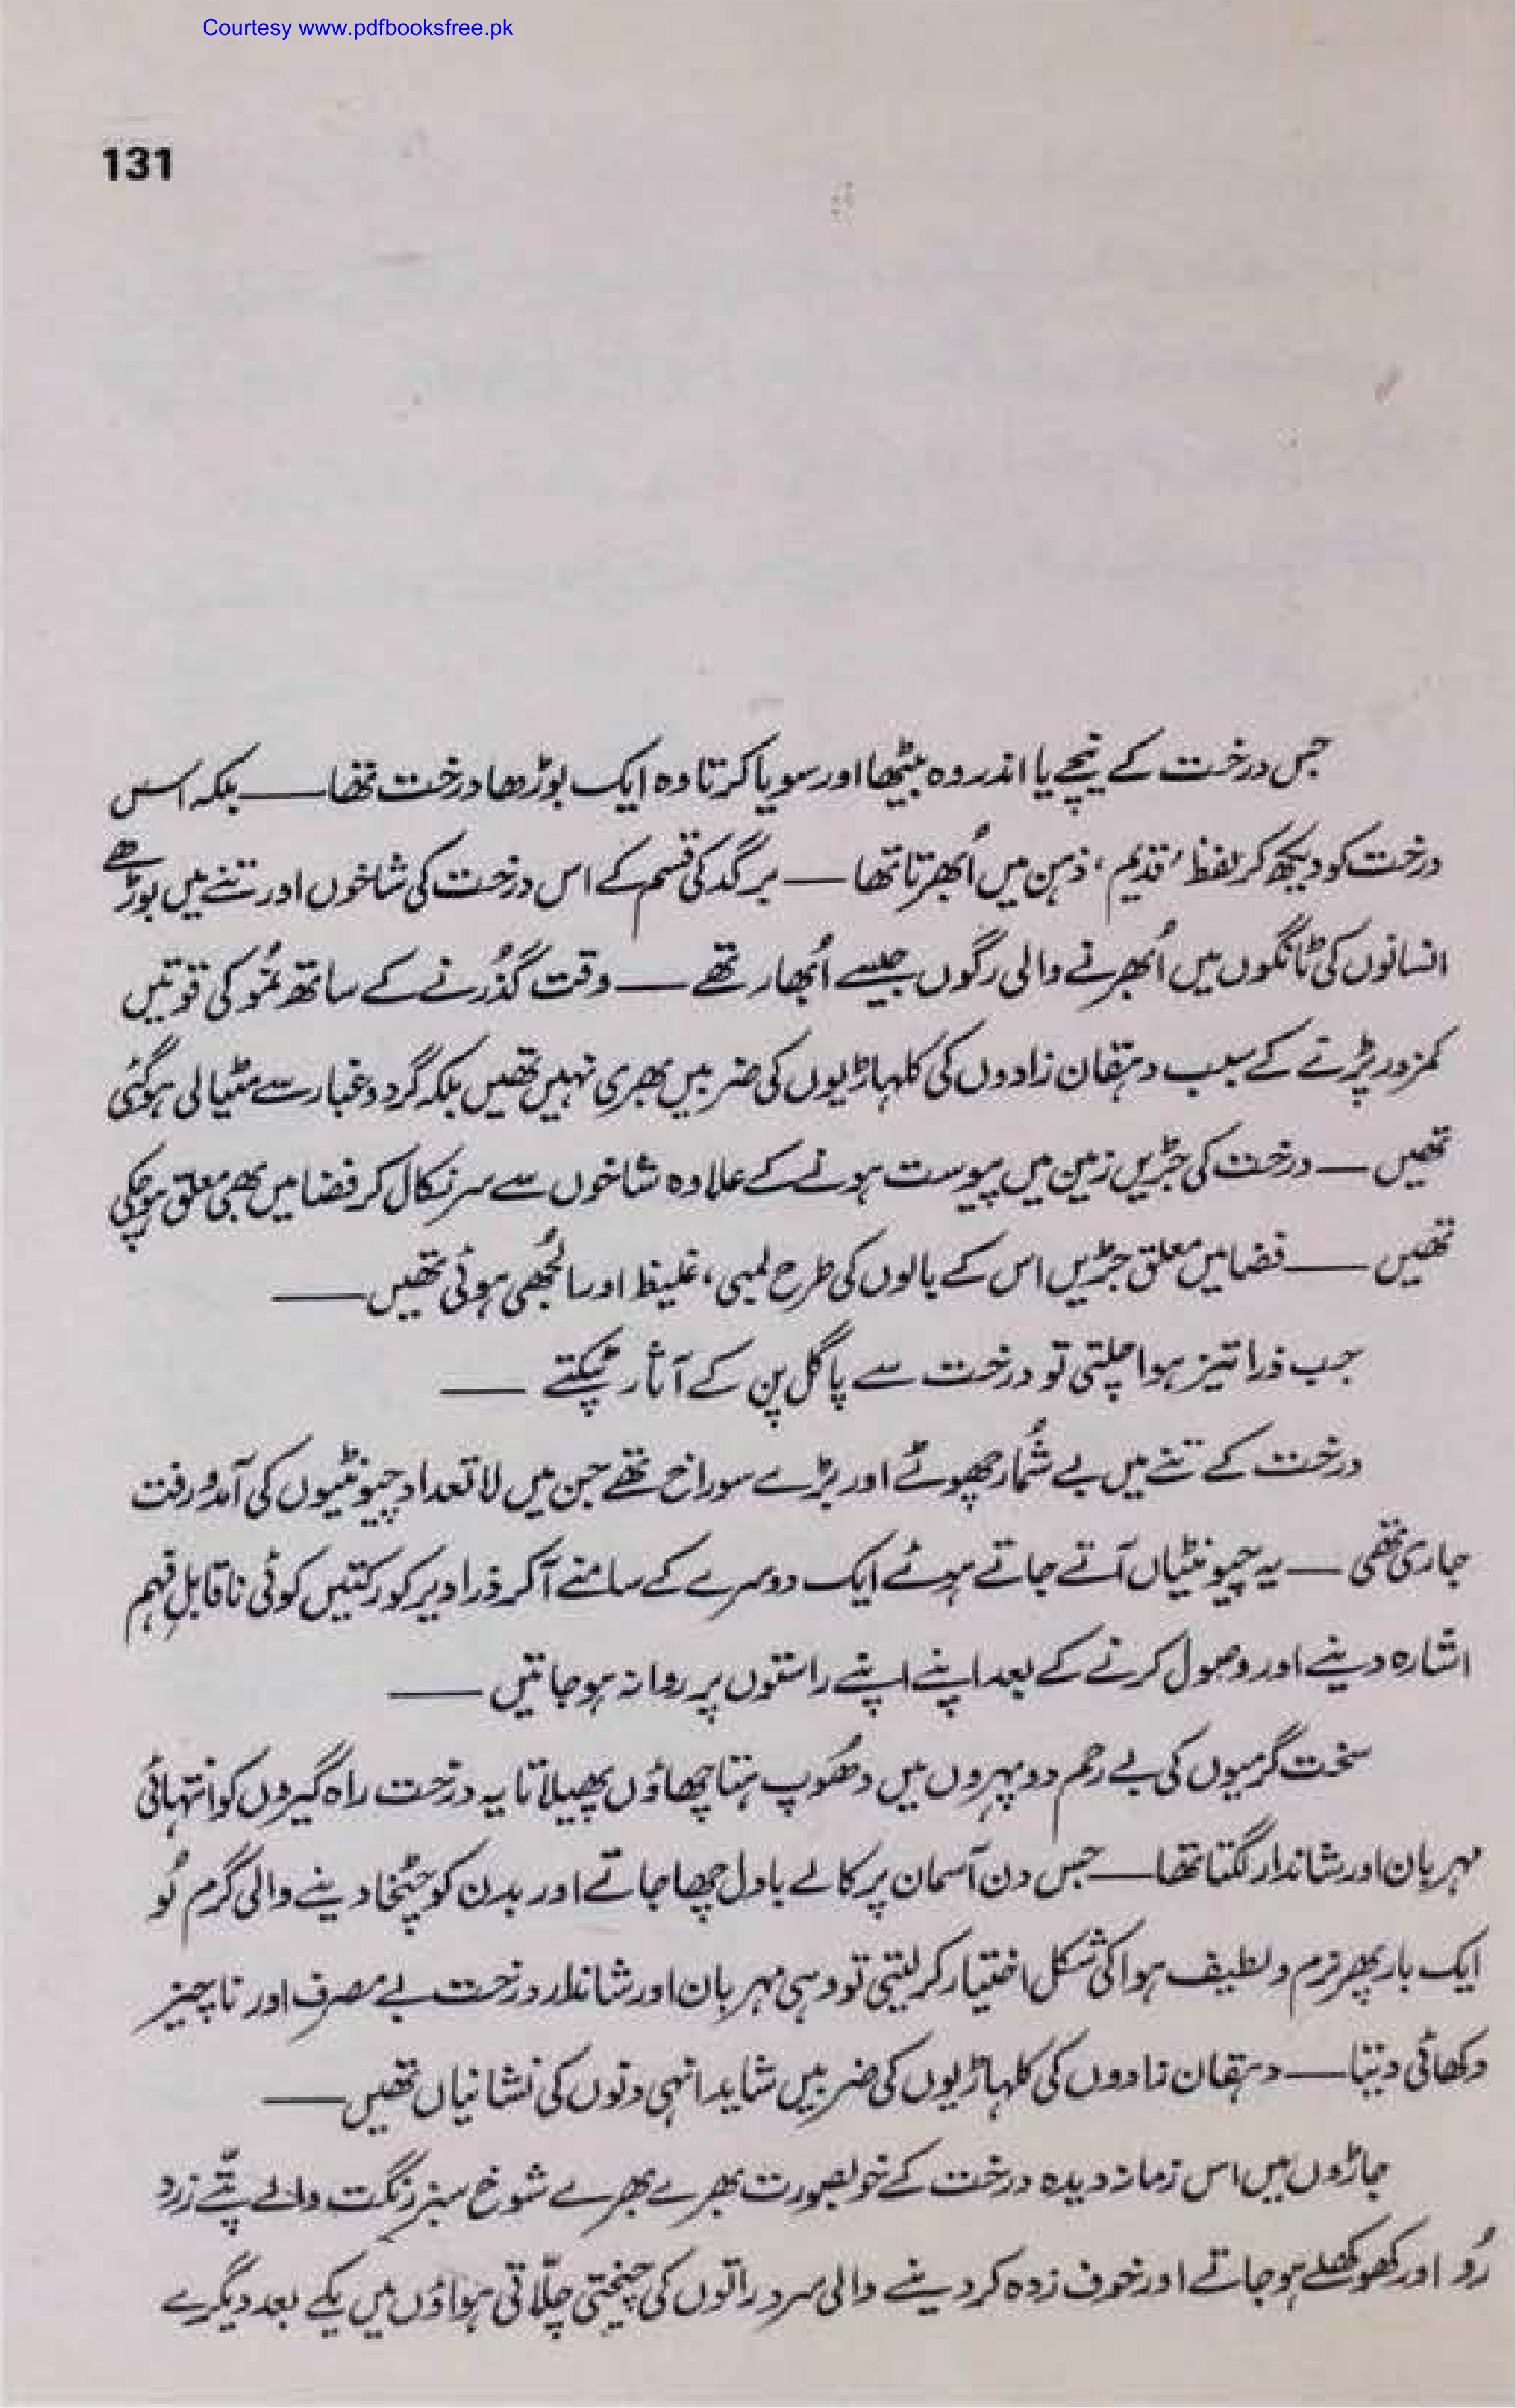 Courtesy www.pdfbooksfree.pk
131
جس درخت کے نیچے یا اندر وہ بیٹھا اور سویا کرتا وہ ایک بوڑھا درخت تھا — بلکہ اس
درخت کو دیکھ کر لفظ ’قدیم‘ ذہن میں اُبھرتا تھا — برگد کی قسم کے اس درخت کی شاخوں اور تنے میں بوڑھے
انسانوں کی ٹانگوں میں اُبھرنے والی رگوں جیسے اُبھار تھے — وقت گذُرنے کے ساتھ نمُو کی قوتیں
کمزور پڑنے کے سبب دہقان زادوں کی کلہاڑیوں کی ضربیں بھری نہیں تھیں بلکہ گرد و غبار سے مٹیالی ہو گئی
تھیں — درخت کی جڑیں زمین میں پیوست ہونے کے علاوہ شاخوں سے سر نکال کر فضا میں بھی معلق ہو چکی
تھیں — فضا میں معلق جڑیں اس کے بالوں کی طرح لمبی، غلیظ اور الُجھی ہوئی تھیں —
جب ذرا تیز ہوا چلتی تو درخت سے پاگل پن کے آثار ٹپکتے —
درخت کے تنے میں بے شُمار چھوٹے اور بڑے سوراخ تھے جن میں لاتعداد چیونٹیوں کی آمدورفت
جاری تھی — یہ چیونٹیاں آتے جاتے ہوئے ایک دوسرے کے سامنے آ کر ذرا دیر کو رکتیں کوئی ناقابلِ فہم
اشارہ دینے اور وصول کرنے کے بعد اپنے اپنے راستوں پر روانہ ہو جاتیں —
سخت گرمیوں کی بے رحم دوپہروں میں دھُوپ سہتا چھاؤں پھیلاتا یہ درخت راہ گیروں کو انتہائی
مہربان اور شاندار لگتا تھا — جس دن آسمان پر کالے بادل چھا جاتے اور بدن کو چٹخا دینے والی گرم لُو
ایک بار پھر نرم و لطیف ہوا کی شکل اختیار کر لیتی تو وہی مہربان اور شاندار درخت بے مصرف اور ناچیز
دکھائی دیتا — دہقان زادوں کی کلہاڑیوں کی ضربیں شاید انہی دنوں کی نشانیاں تھیں —
جاڑوں میں اس زمانہ دیدہ درخت کے خوبصورت بھرے بھرے شوخ سبز رنگت والے پتّے زرد
رُو اور کھوکھلے ہو جاتے اور خوف زدہ کر دینے والی سرد راتوں کی چیختی چلّاتی ہواؤں میں یکے بعد دیگرے